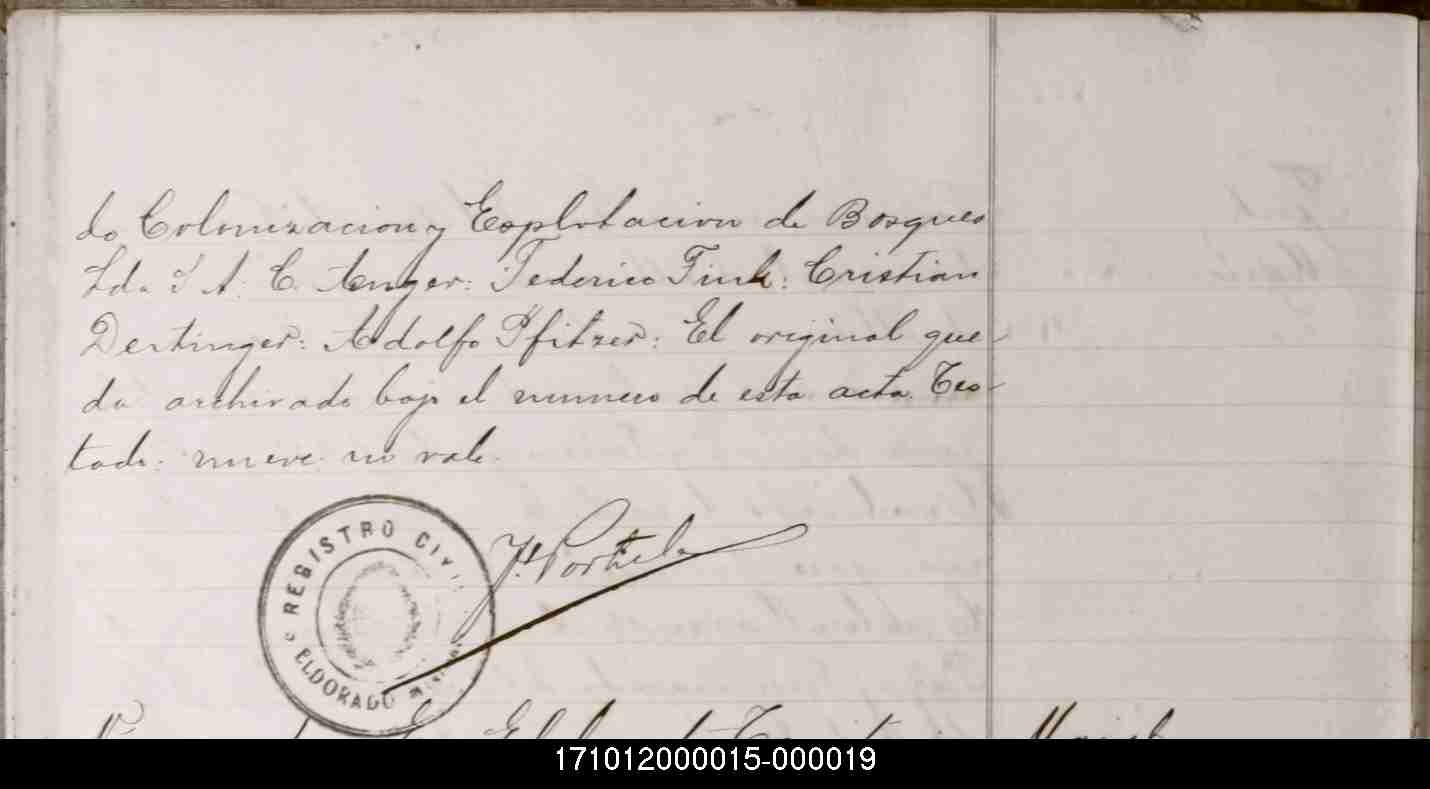 do Colonizacion y Esplotacion de Bosques
Lda S A: C. Anger: Federico Fink: Cristian
Dertinger: Adolfo Pfitzer: El original que
da archivado bajo el numero de esta acta. Tes
tado: nueve no vale.
REGISTRO CIVIL
ELDORADO
J. Portela
171012000015-000019